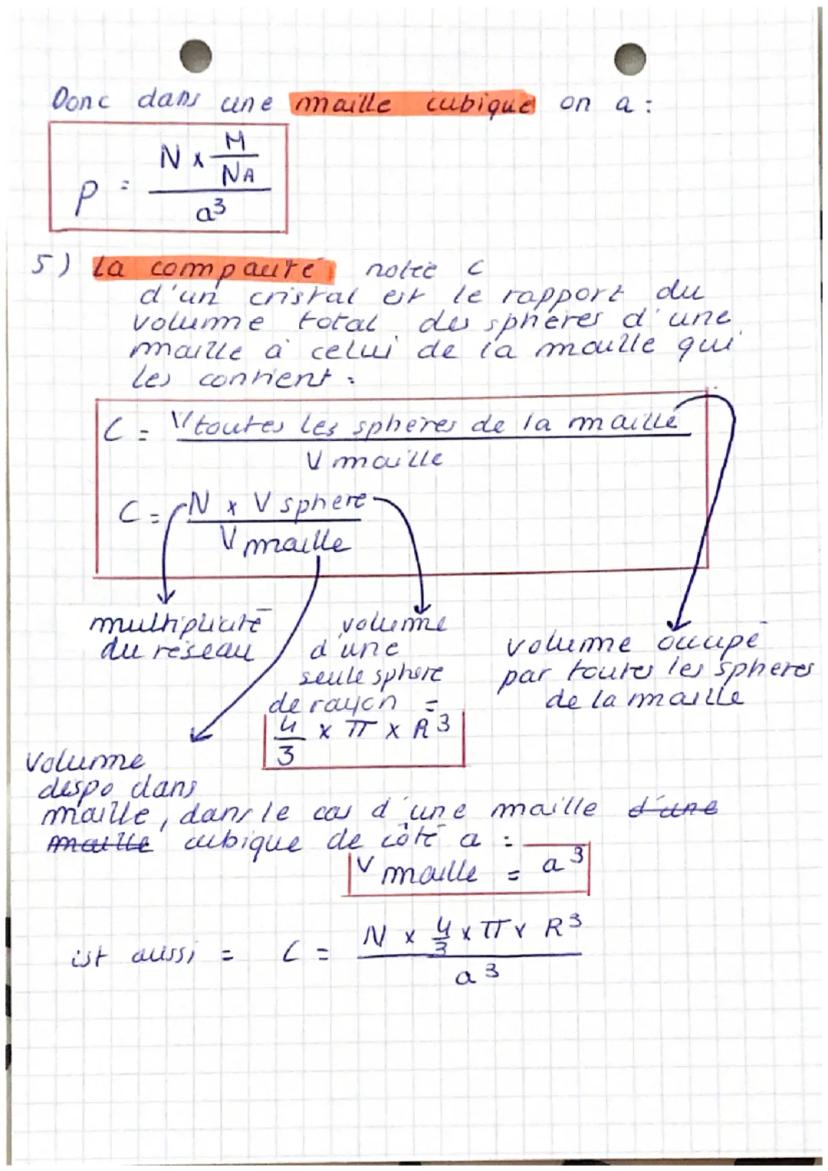 Donc dans une maille cubique on a :
ρ = (N x M/NA) / a³
5) la compacité notée C
d'un cristal est le rapport du
volume total des sphères d'une
maille à celui de la maille qui
les contient :
C = V toutes les sphères de la maille / V maille
C = N x V sphere / V maille
multiplicité
du réseau
volume
d'une
seule sphere
de rayon =
4/3 x π x R³
volume occupé
par toutes les spheres
de la maille
volume
dispo dans
maille, dans le cas d'une maille d'une
maille cubique de côté a :
V maille = a³
ist aussi = C = (N x 4/3 x π x R³) / a³